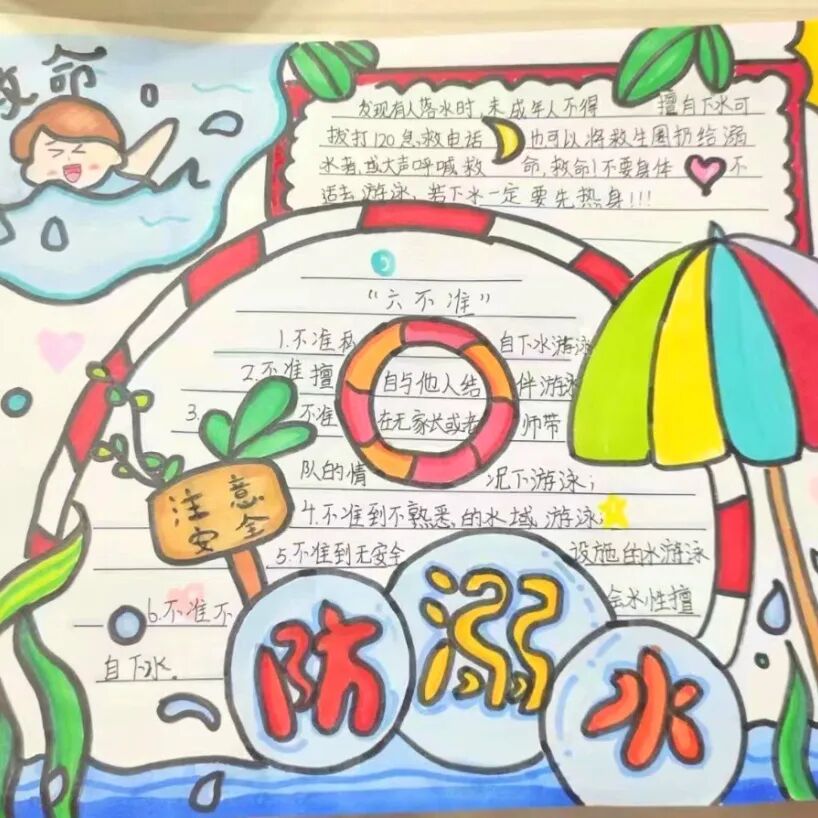 救命
发现有人落水时，未成年人不得 擅自下水可
拨打120急救电话 也可以将救生圈扔给溺
水者，或大声呼喊救 命，救命！不要身体 不
适去游泳，若下水一定要先热身!!!
“六不准”
1.不准私 自下水游泳
2.不准擅 自与他人结 伴游泳
3. 不准 在无家长或者 师带
队的情 况下游泳；
4.不准到不熟悉的水域游泳
5.不准到无安全 设施的水游泳
6.不准不 会水性擅
自下水.
注意
安全
防溺水